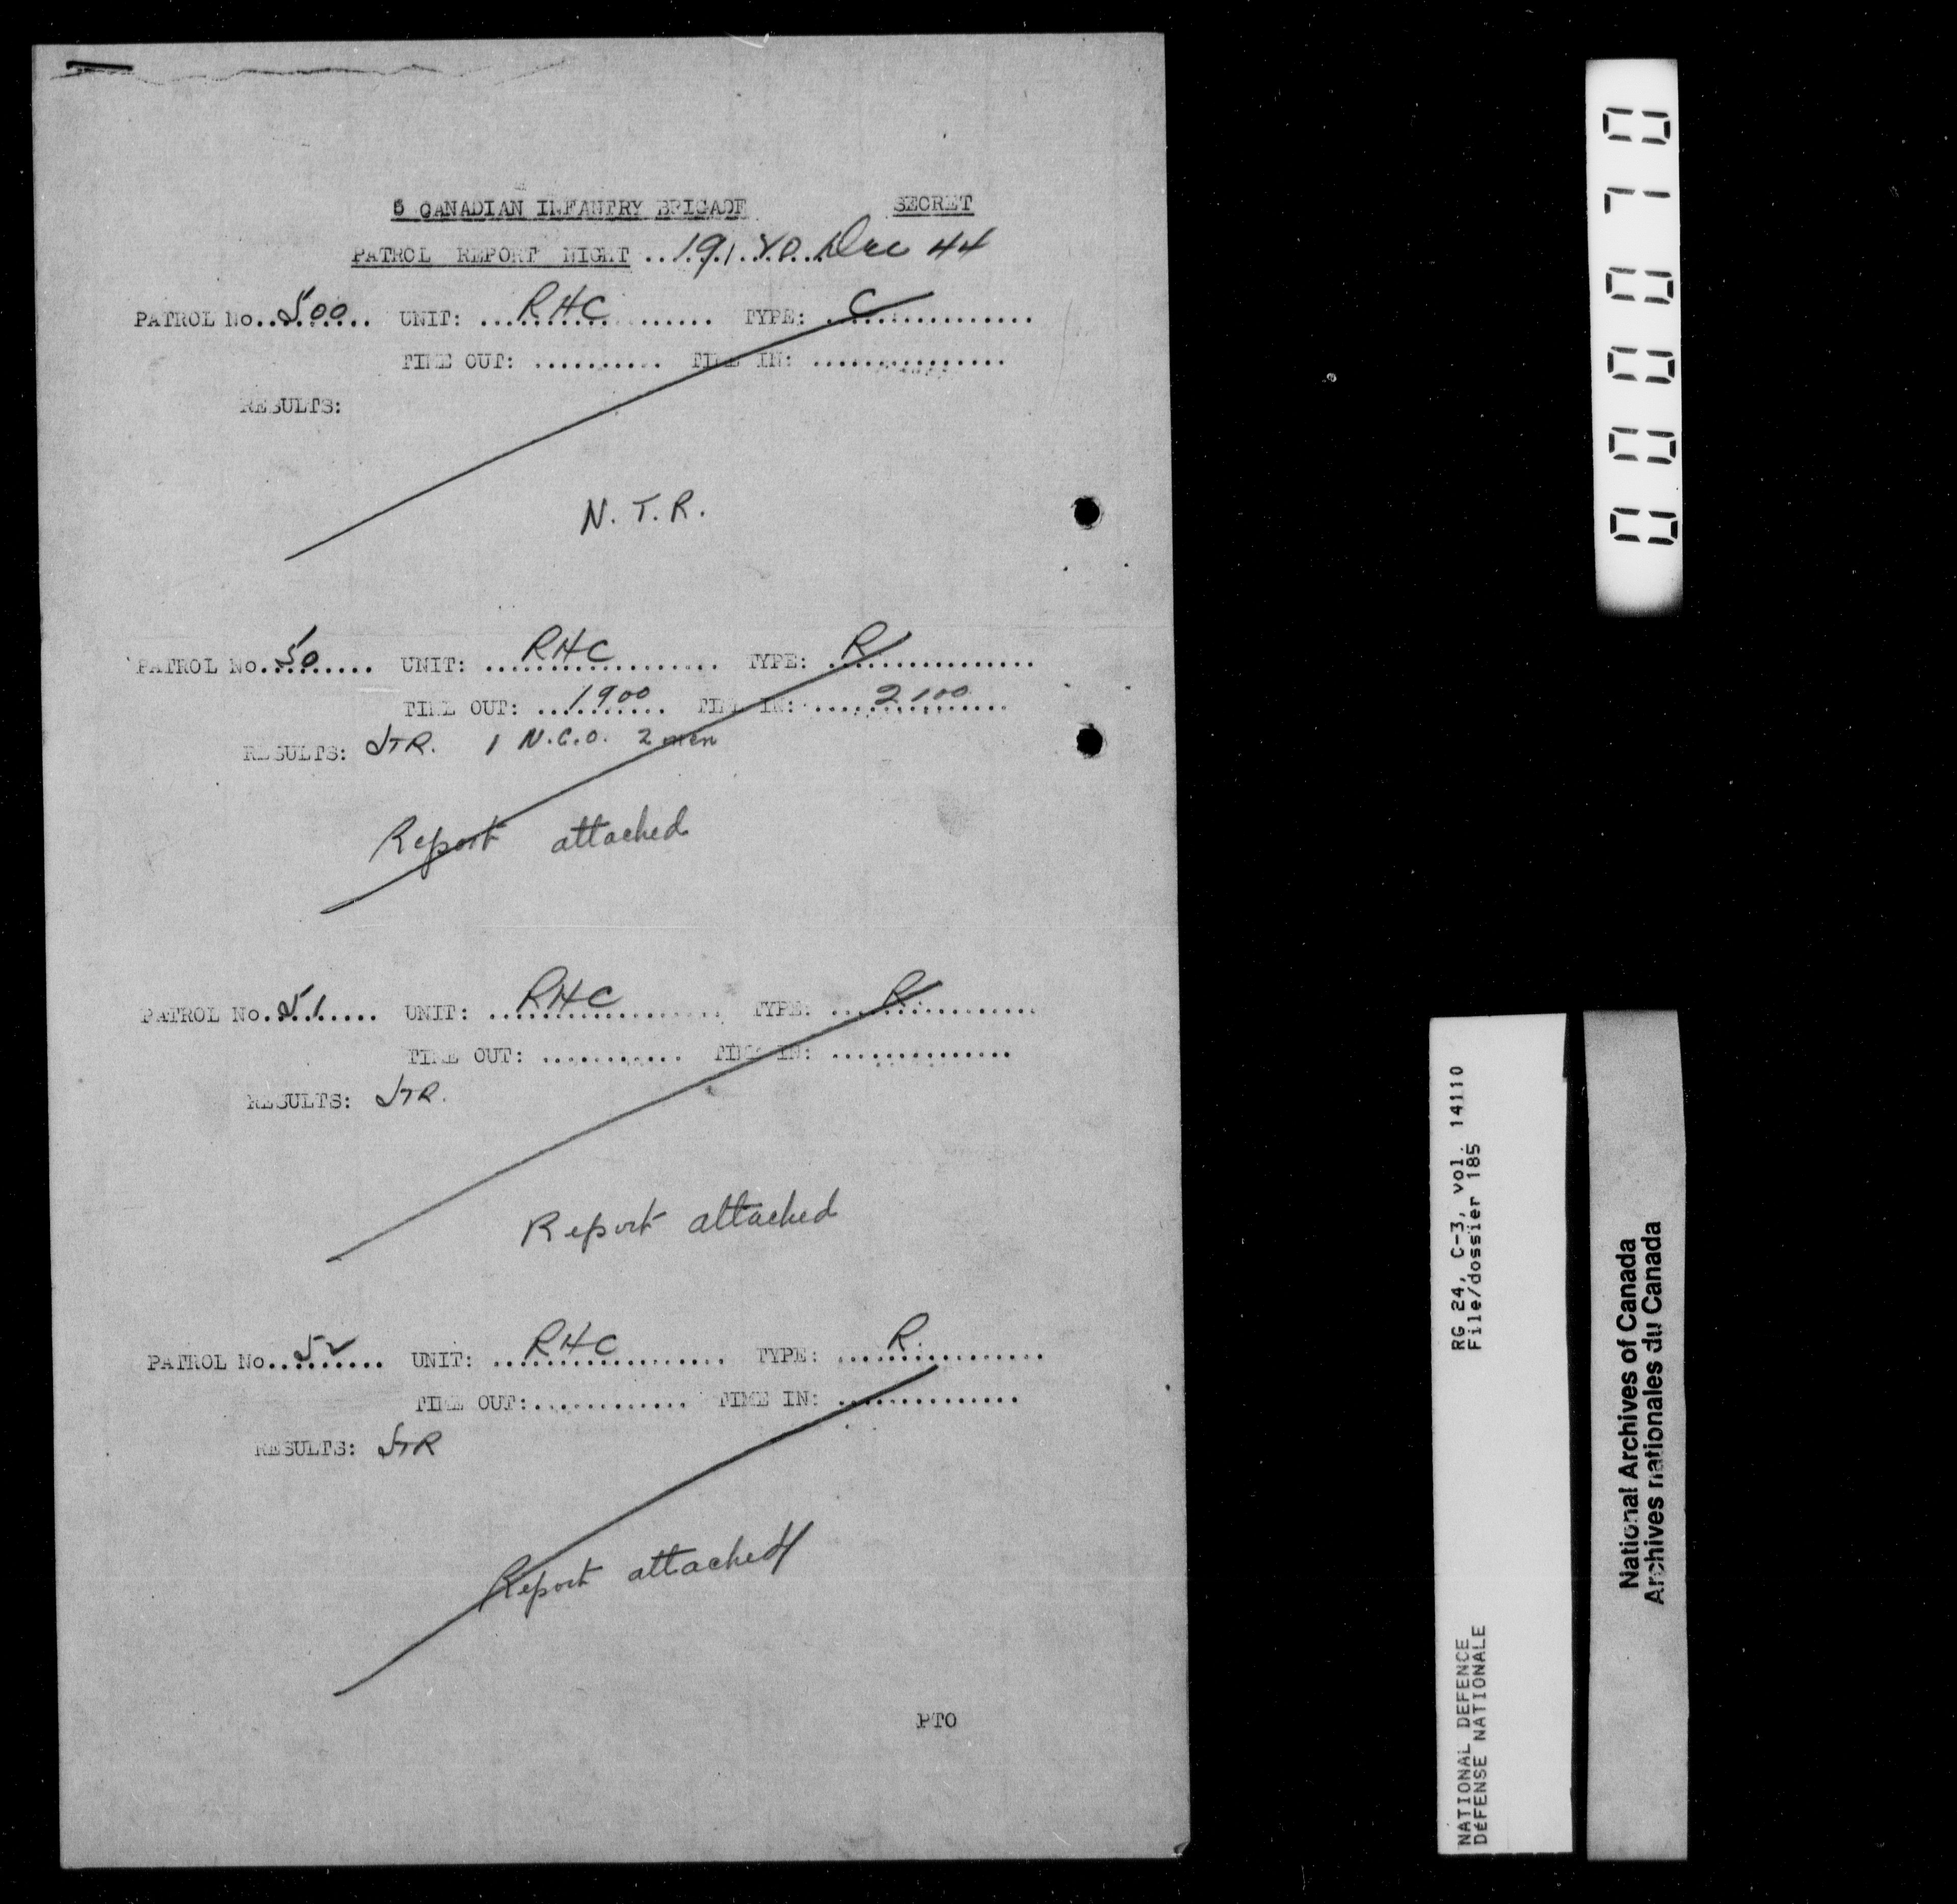 5 CANADIAN INFANTRY BRIGADE SECRET
PATROL REPORT NIGHT ..19/20 Dec 44
PATROL No. 500 UNIT: RHC TYPE: C
TIME OUT: ........... TIME IN: ...............
RESULTS:
N.T.R.
PATROL No. 50 UNIT: RHC TYPE: R
TIME OUT: 1900 TIME IN: 2100
RESULTS: STR. 1 N.C.O. 2 men
Report attached
PATROL No. 51 UNIT: RHC TYPE: R
TIME OUT: ........... TIME IN: ..............
RESULTS: STR.
Report attached
PATROL No. 52 UNIT: RHC TYPE: R
TIME OUT:............ TIME IN: ..............
RESULTS: STR
Report attached
PTO
000070
RG 24, C-3, vol. 14110
File/dossier 185
NATIONAL DEFENCE
DÉFENSE NATIONALE
National Archives of Canada
Archives nationales du Canada